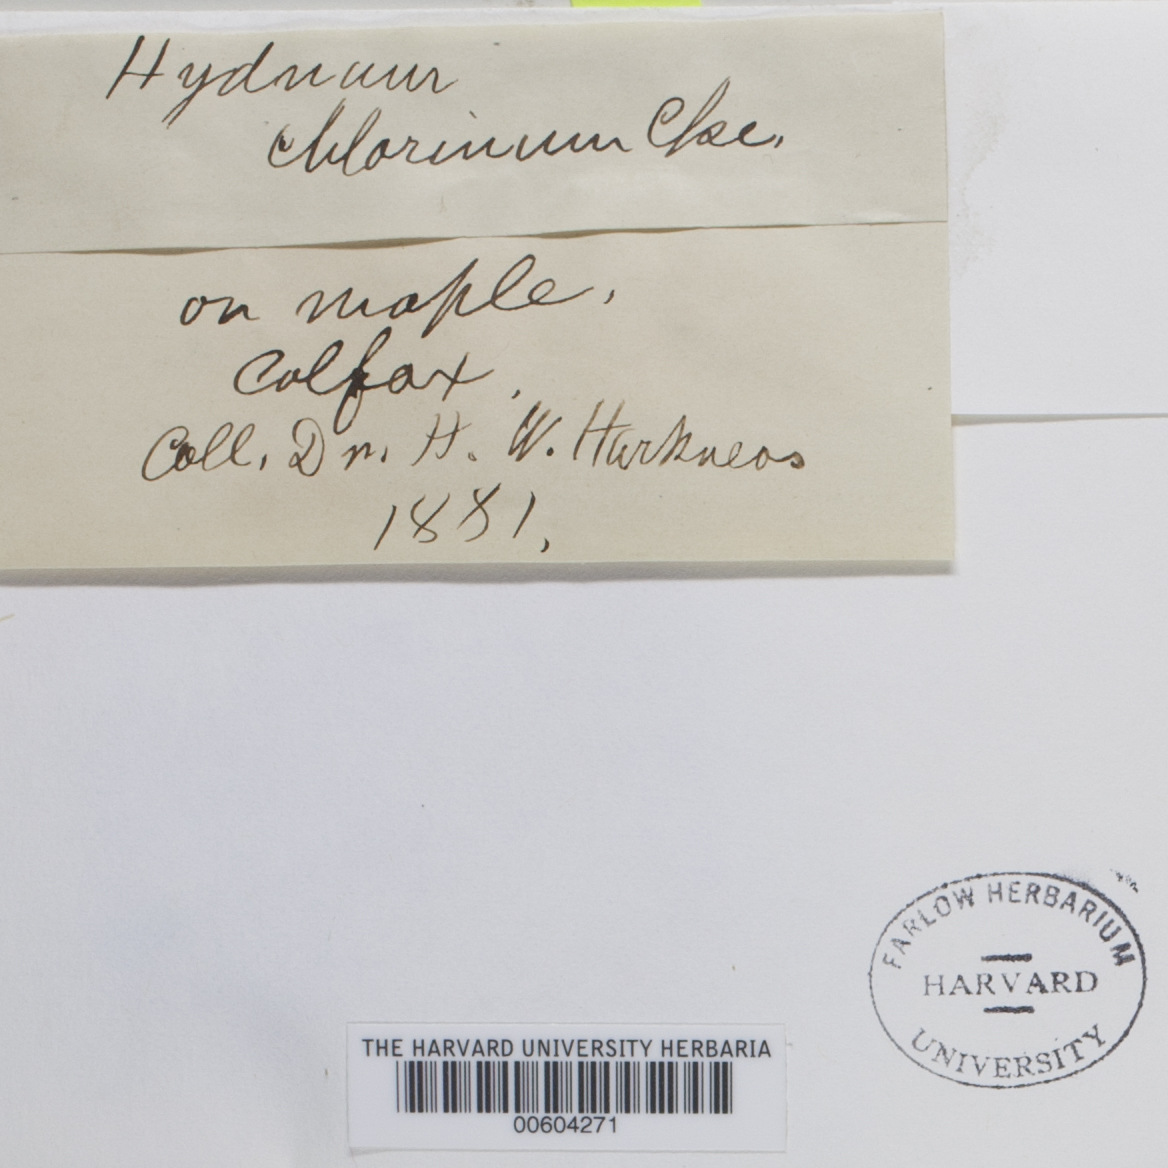 Hydnum
chlorinum Cke.
on maple.
Colfax.
Coll. Dr. H. W. Harkness
1881.
FARLOW HERBARIUM
HARVARD
UNIVERSITY
THE HARVARD UNIVERSITY HERBARIA
00604271